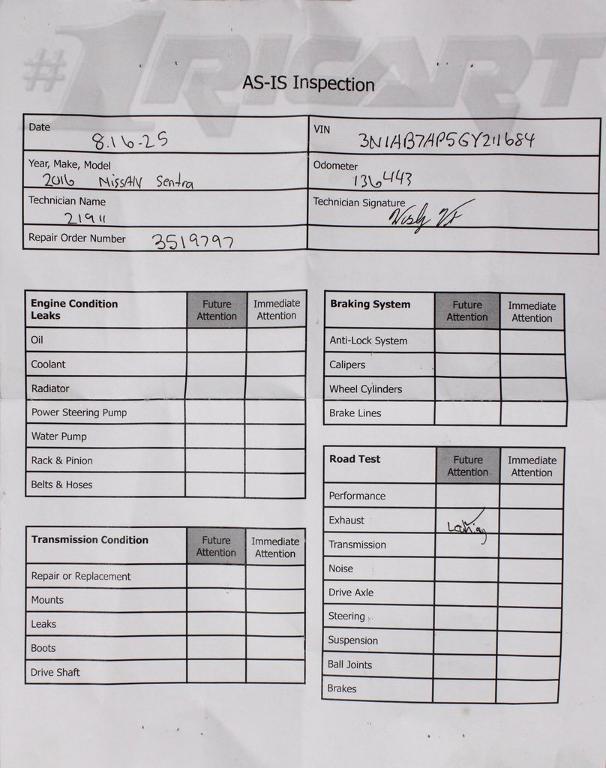 #1 RICART
AS-IS Inspection
Date 8.16-25
VIN 3N1AB7AP5GY211684
Year, Make, Model
2016 NISSAN Sentra
Odometer
136443
Technician Name
21911
Technician Signature
Repair Order Number 3519797
Engine Condition
Leaks
Future
Attention
Immediate
Attention
Oil
Coolant
Radiator
Power Steering Pump
Water Pump
Rack & Pinion
Belts & Hoses
Transmission Condition
Future
Attention
Immediate
Attention
Repair or Replacement
Mounts
Leaks
Boots
Drive Shaft
Braking System
Future
Attention
Immediate
Attention
Anti-Lock System
Calipers
Wheel Cylinders
Brake Lines
Road Test
Future
Attention
Immediate
Attention
Performance
Exhaust
Transmission
Noise
Drive Axle
Steering
Suspension
Ball Joints
Brakes